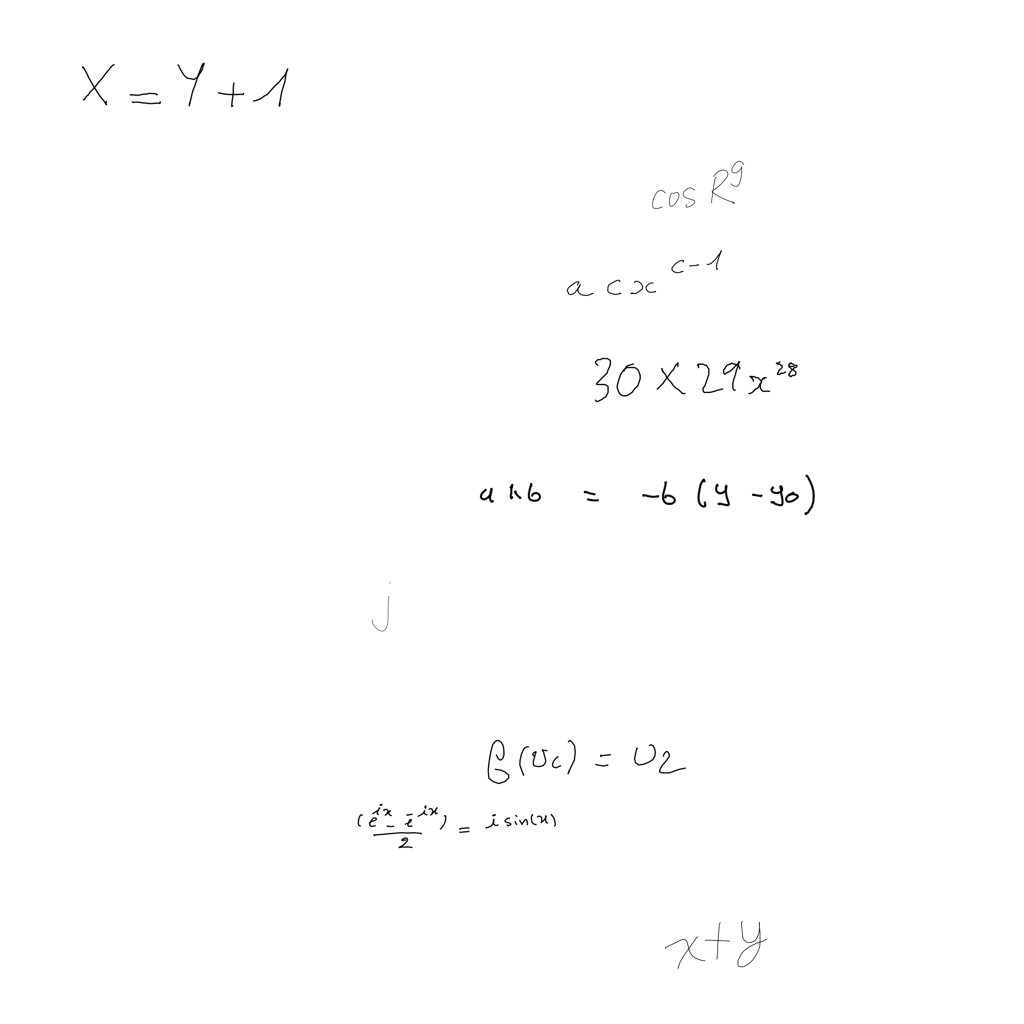 X = Y + 1
cos R^g
a c x^{c-1}
30 × 29 x^{28}
= -b (y - y0)
j
β(v_c) = v_2
(e^{ix} - e^{-ix})/2 = i sin(x)
x + y